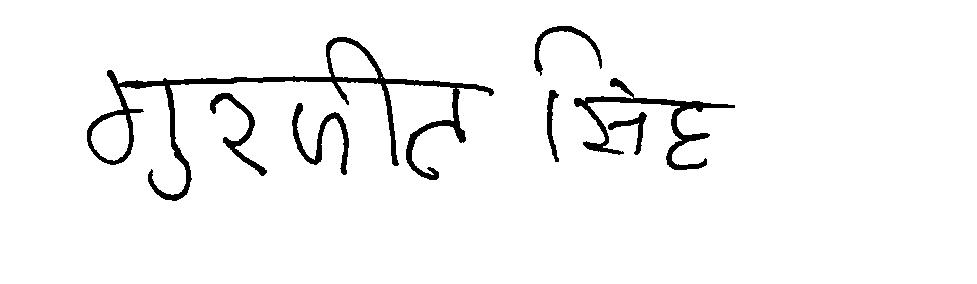 गुरजीत सिंह